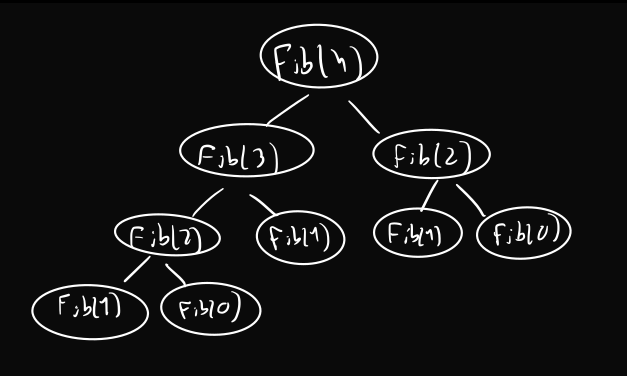 Fib(4)
Fib(3) Fib(2)
Fib(2) Fib(1) Fib(1) Fib(0)
Fib(1) Fib(0)